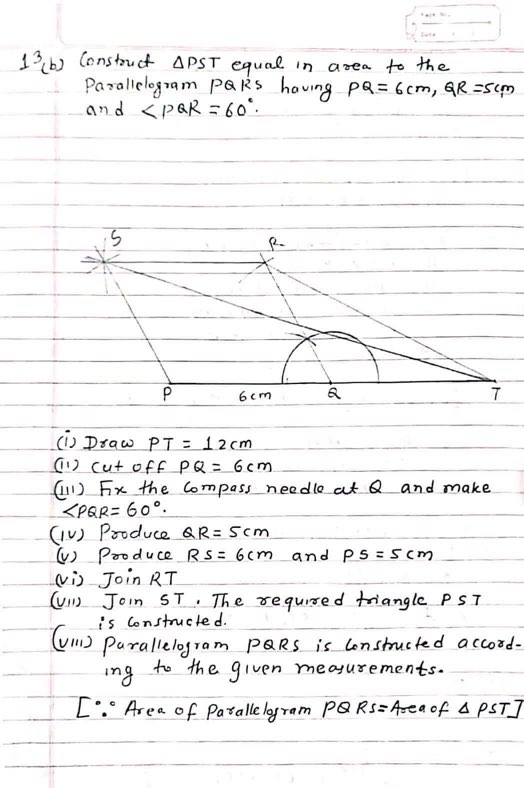 Page No.
Date
13(b) Construct ΔPST equal in area to the
Parallelogram PQRS having PQ = 6cm, QR = 5cm
and <PQR = 60°.
S
R
P
6cm
Q
T
(i) Draw PT = 12cm
(ii) Cut off PQ = 6cm
(iii) Fix the Compass needle at Q and make
<PQR = 60°.
(iv) Produce QR = 5cm
(v) Produce RS = 6cm and PS = 5cm
(vi) Join RT
(vii) Join ST. The required triangle PST
is constructed.
(viii) Parallelogram PQRS is constructed accord-
ing to the given measurements.
[∵ Area of Parallelogram PQRS = Area of Δ PST]